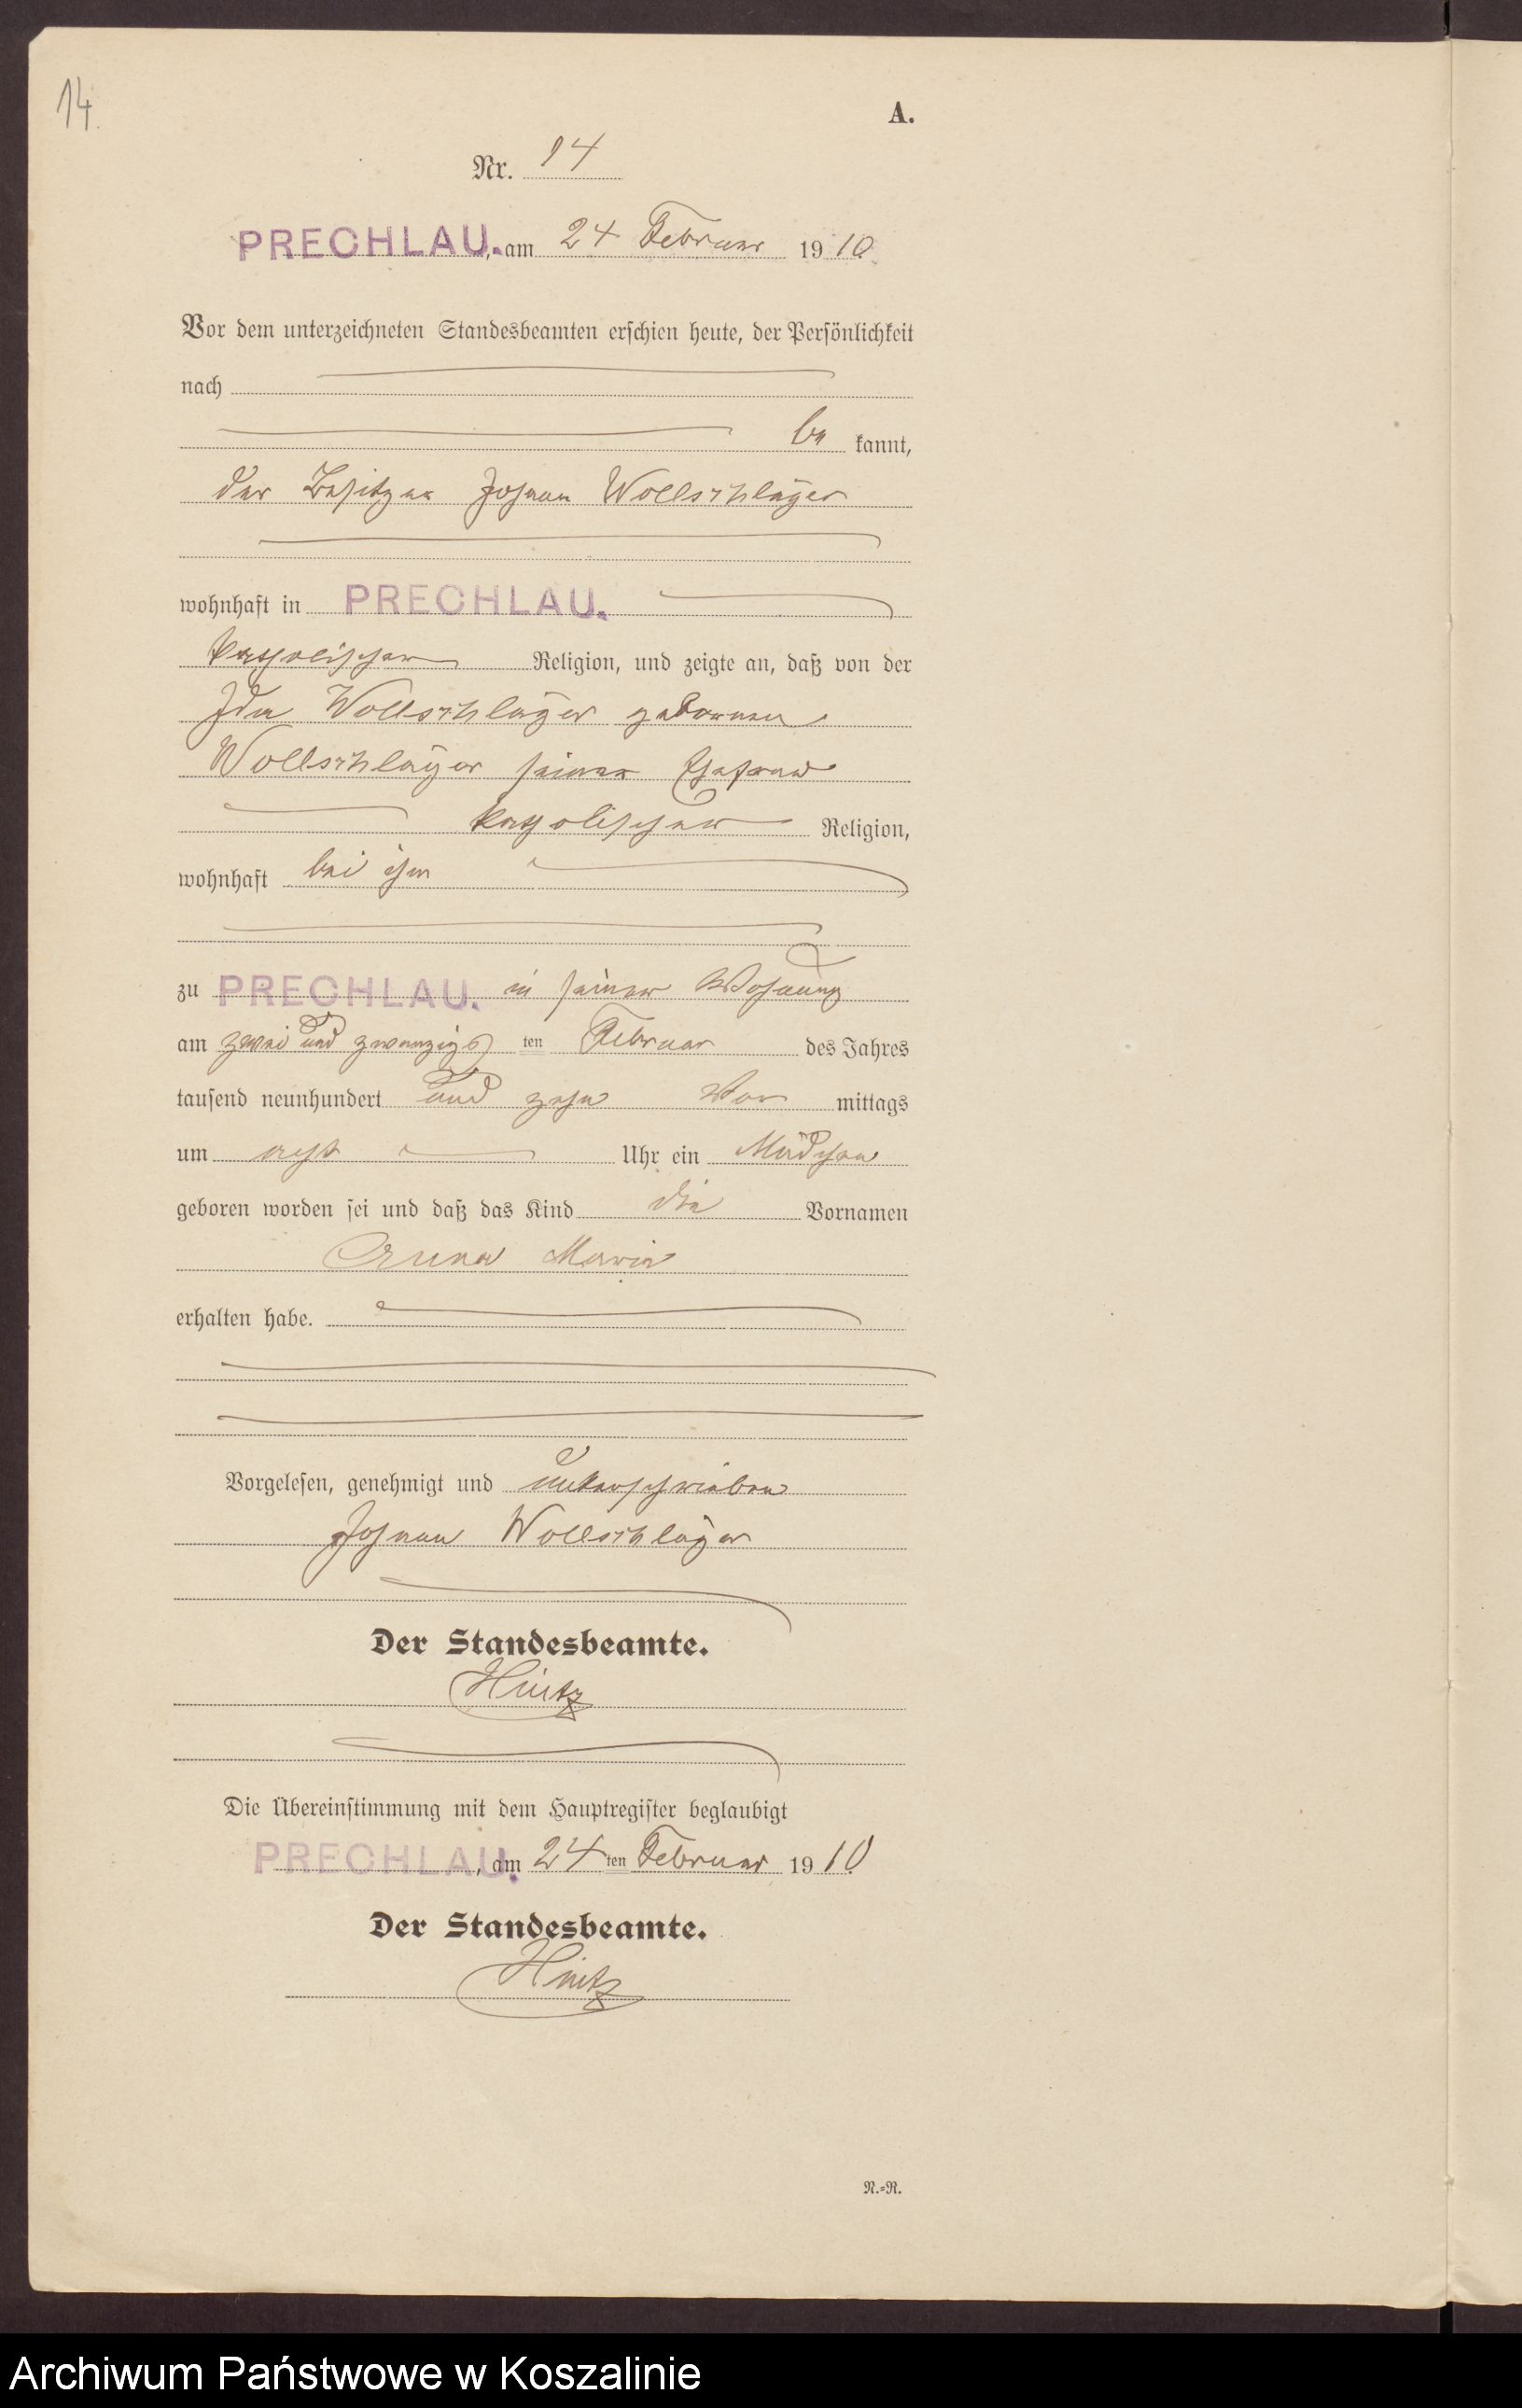 14.
A.
Nr. 14
PRECHLAU., am 24 Februar 1910.
Vor dem unterzeichneten Standesbeamten erschien heute, der Persönlichkeit
nach
be kannt,
der Besitzer Johann Wollschläger
wohnhaft in PRECHLAU.
katholischer Religion, und zeigte an, daß von der
Ida Wollschläger geborenen
Wollschläger seiner Ehefrau
katholischer Religion,
wohnhaft bei ihm
zu PRECHLAU. in seiner Wohnung
am zwei und zwanzigsten Februar des Jahres
tausend neunhundert und zehn Vor mittags
um acht Uhr ein Mädchen
geboren worden sei und daß das Kind die Vornamen
Anna Maria
erhalten habe.
Vorgelesen, genehmigt und unterschrieben
Johann Wollschläger
Der Standesbeamte.
Hintz
Die Übereinstimmung mit dem Hauptregister beglaubigt
PRECHLAU., am 24ten Februar 1910
Der Standesbeamte.
Hintz
N.=R.
Archiwum Państwowe w Koszalinie